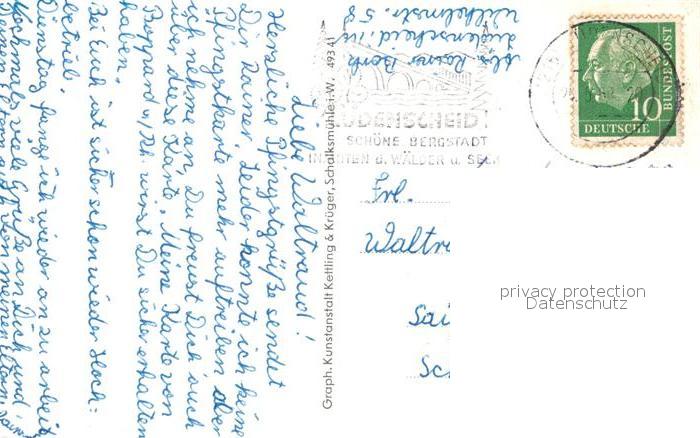 Liebe Waltraud!
Herzliche Pfingstgrüße sendet
Dir Rainer. Leider konnte ich keine
Pfingstkarte mehr auftreiben aber
ich nehme an, Du freust Dich auch
über diese Karte. Meine Karte von
Boppard a/Rh. wirst Du sicher erhalten
haben.
Bei Euch ist sicher schon wieder Hoch=
betrieb.
Dienstag fange ich wieder an zu arbeiten
Nochmals viele Grüße an Dich und
Deinen Eltern auch von meinen Eltern.
Graph. Kunstanstalt Kettling & Krüger, Schalksmühle i. W. 493 41
Abs. Rainer Bork
Lüdenscheid i.W.
Wilhelmstr. 58
LÜDENSCHEID
SCHÖNE BERGSTADT
WÄLDER u. SEEN
BUNDESPOST
10
DEUTSCHE
Frl.
Waltr
Sai
Sc
privacy protection
Datenschutz